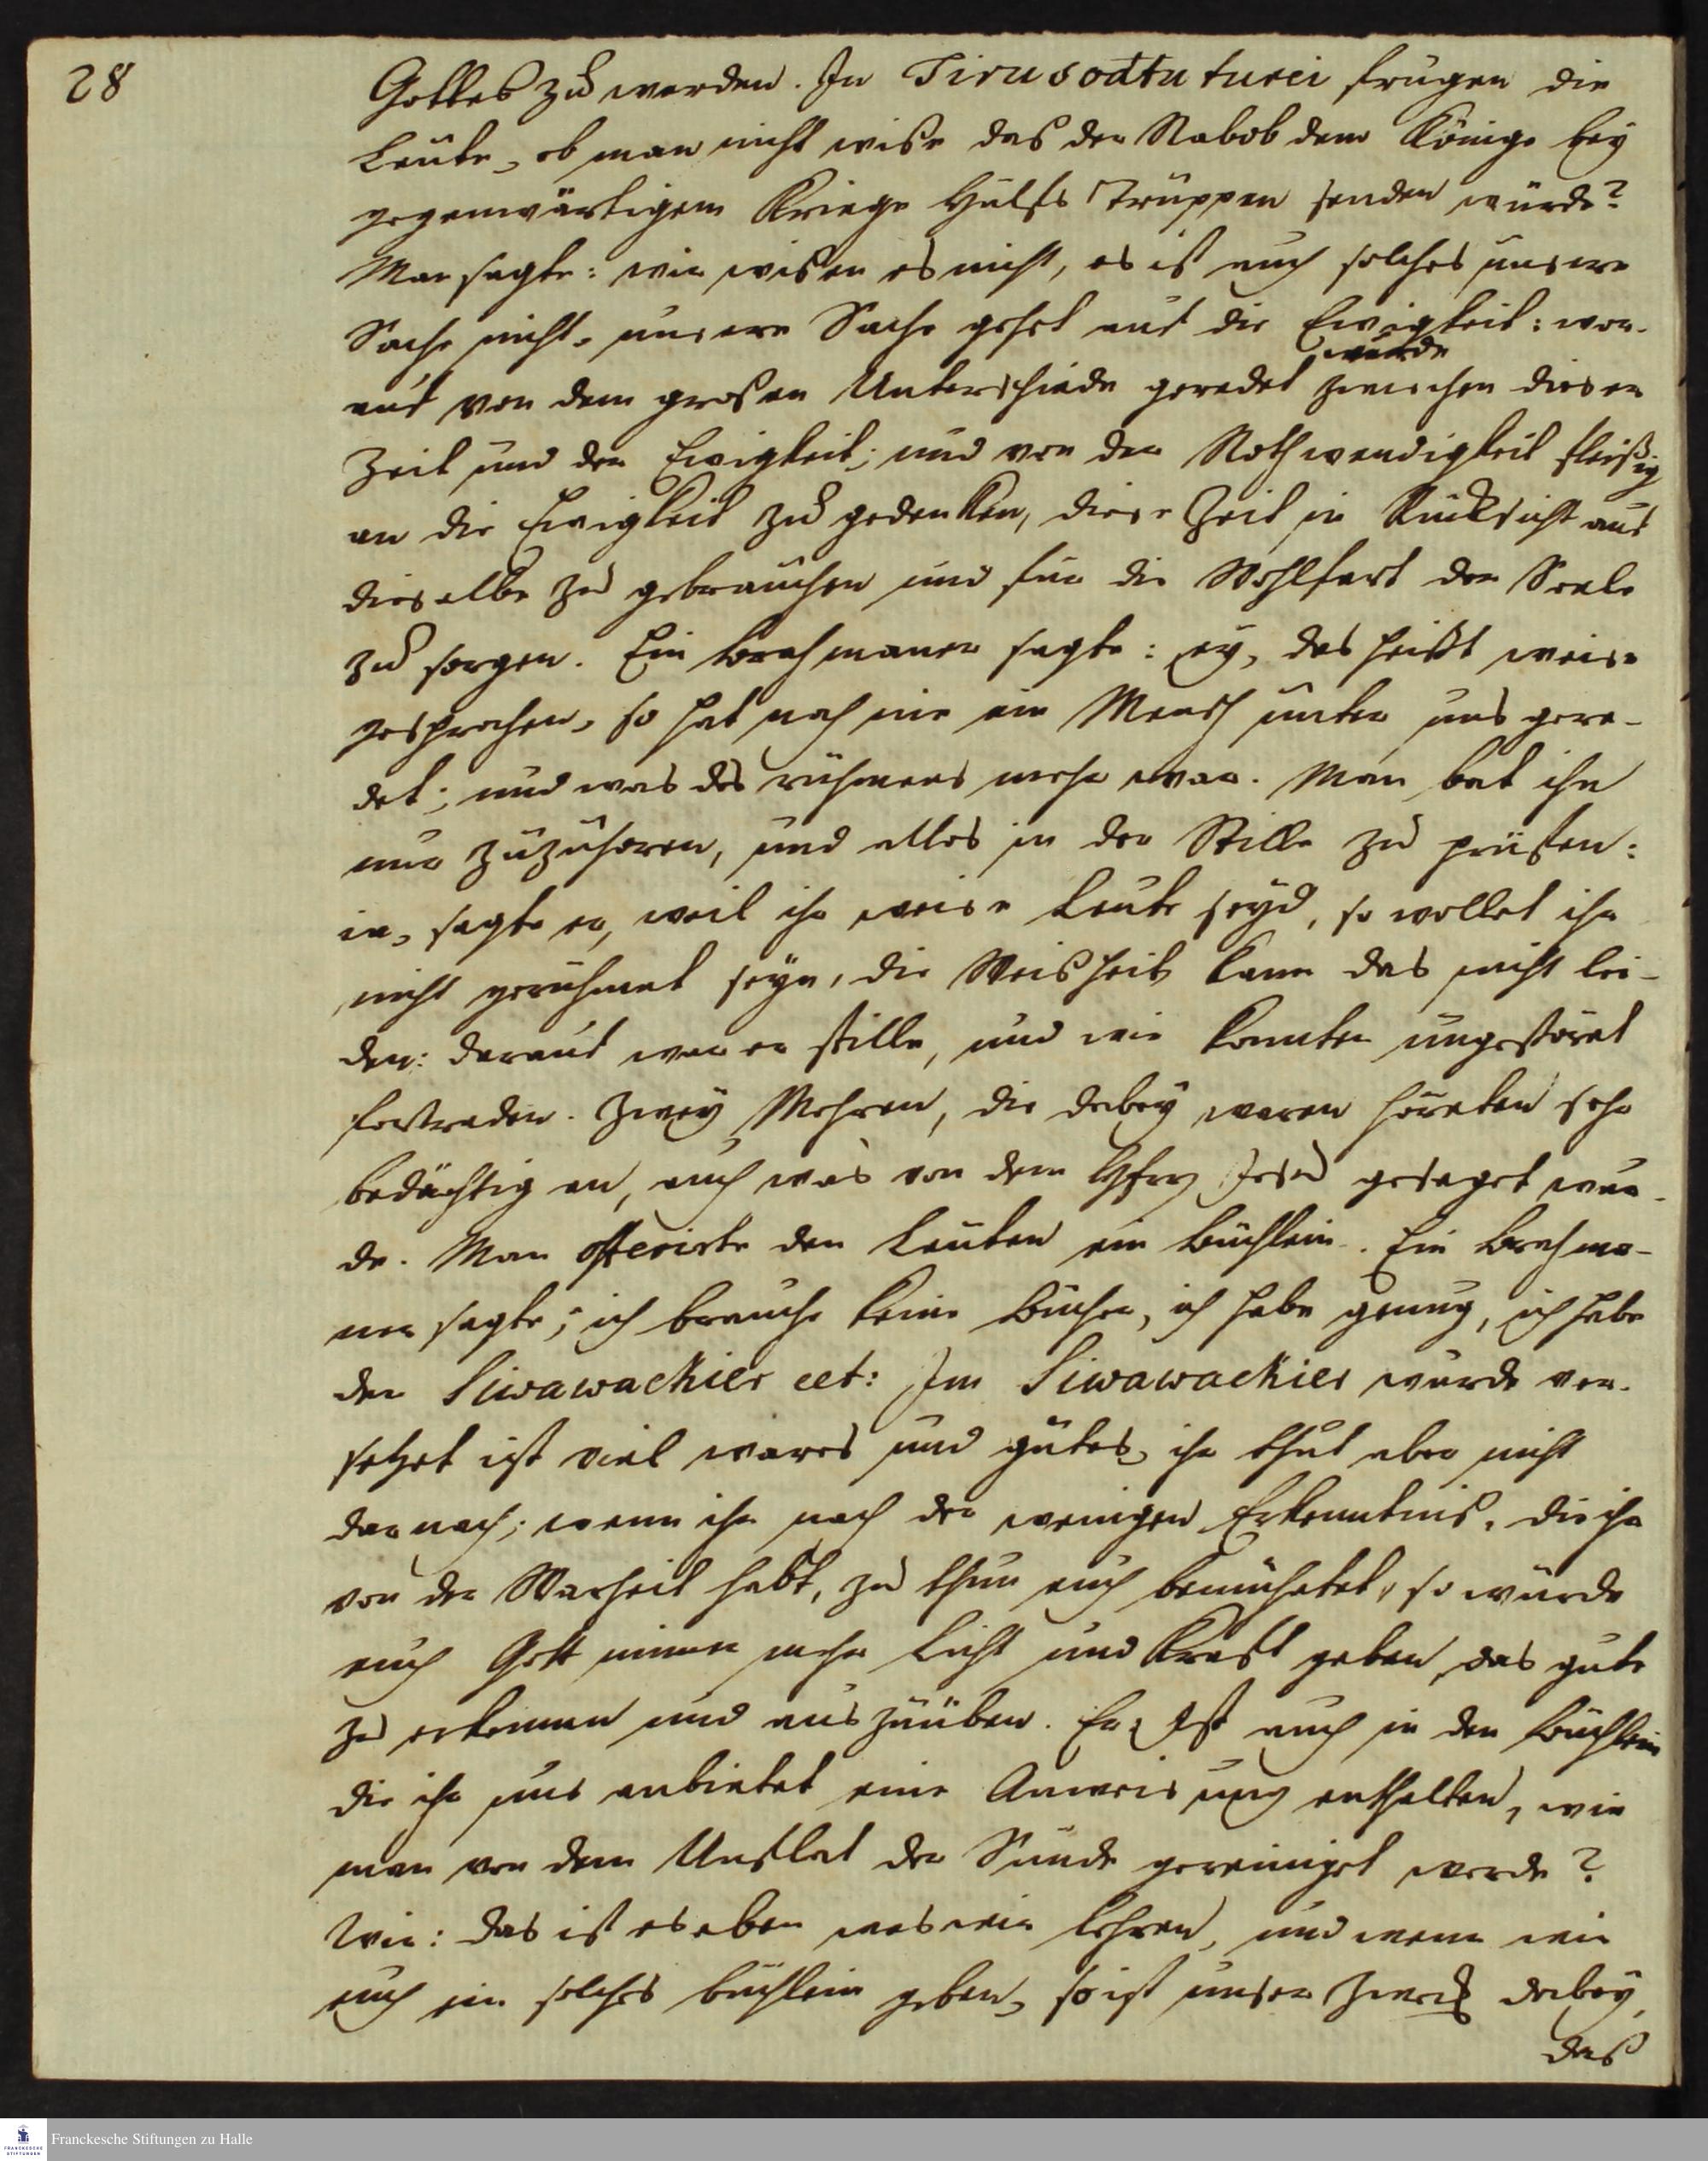 28
Gottes zu werden. In Tirusodtutureci frugen die
Leute, ob man nicht wiße das der Nabob dem Könige bey
gegenwärtigem Kriege Hülfs Truppen senden würde?
Man sagte: wir wißen es nicht, es ist auch solches unsere
Sache nicht, unsere Sache gehet auf die Ewigkeit: wor-
würde
auf von dem großen Unterschiede geredet zwischen dieser
Zeit und der Ewigkeit; und von der Nothwendigkeit fleißig
an die Ewigkeit zu gedenken, diese Zeit in Rücksicht auf
dieselbe zu gebrauchen und für die Wohlfart der Seele
zu sorgen. Ein Brahmaner sagte: ey, das heißt weise
gesprochen, so hat noch nie ein Mensch unter uns gere-
det; und was des rühmens mehr war. Man bat ihn
nur zuzuhören, und alles in der Stille zu prüfen:
ia, sagte er, weil ihr weise Leute seyd, so wollet ihr
nicht gerühmet seyn, die Weisheit kann das nicht lei-
den: darauf war er stille, und wir konten ungestöret
fortreden. Zwey Mohren, die dabey waren höreten sehr
bedächtig an, auch was von dem Hfrn Jesu gesaget wur-
de. Man offerirte den Leuten ein Büchlein. Ein Brahma-
ner sagte; ich brauche keine Bücher, ich habe genug, ich habe
den Siwawackier cet: Im Siwawackier wurde ver-
setzet ist viel wares und gutes, ihr thut aber nicht
darnach; wenn ihr nach der wenigen Erkenntniß, die ihr
von der Warheit habt, zu thun euch bemühetet, so würde
euch Gott immer mehr Licht und Kraft geben, das gute
zu erkennen und auszuüben. Er: Ist auch in den Büchlein
die ihr uns anbietet eine Anweisung enthalten, wie
man von dem Unflat der Sünde gereiniget werde?
Wir: das ist es eben was wir lehren, und wenn wir
euch ein solches büchlein geben, so ist unser Zweck dabey,
daß
FRANCKESCHE STIFTUNGEN
Franckesche Stiftungen zu Halle